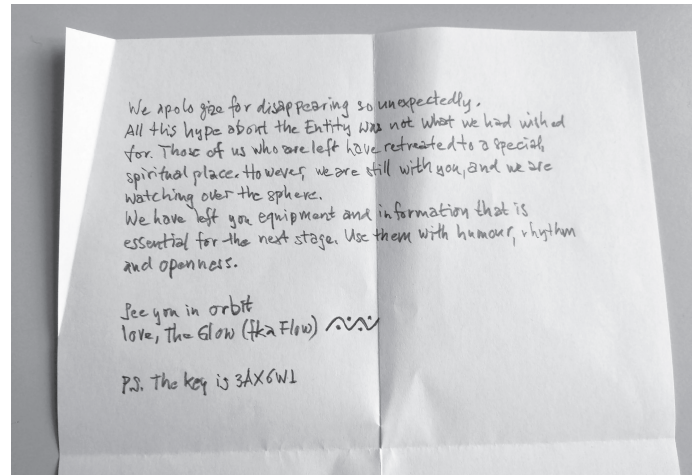 We apologize for disappearing so unexpectedly.
All this hype about the Entity was not what we had wished
for. Those of us who are left have retreated to a special,
spiritual place. However, we are still with you, and we are
watching over the sphere.
We have left you equipment and information that is
essential for the next stage. Use them with humour, rhythm
and openness.
See you in orbit
love, The Glow (fka Flow)
P.S. The key is 3AX6W1